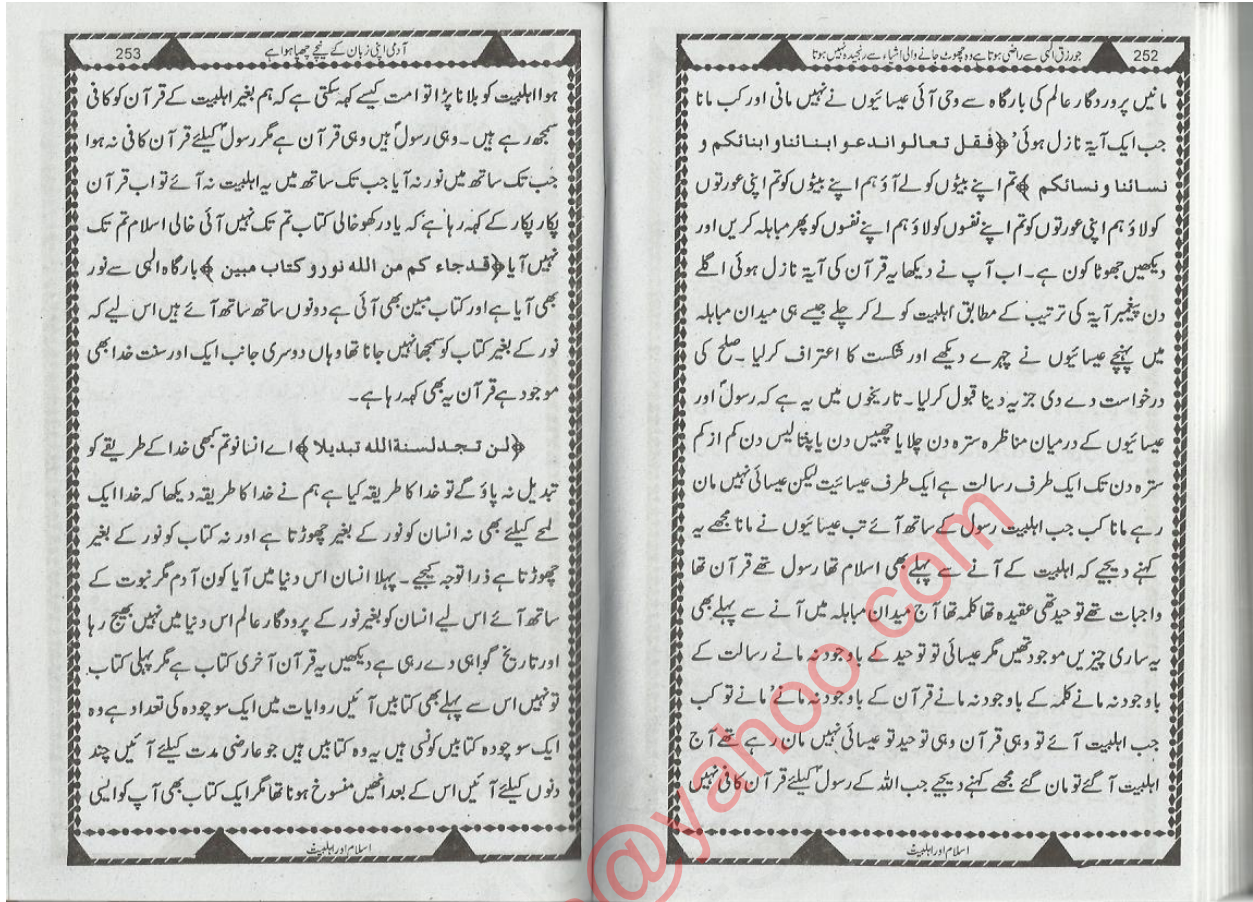 252
جو رزق الٰہی سے راضی ہوتا ہے وہ چھوٹ جانے والی اشیاء سے رنجیدہ نہیں ہوتا
مانیں پروردگار عالم کی بارگاہ سے وحی آئی عیسائیوں نے نہیں مانی اور کب مانا
جب ایک آیۃ نازل ہوئی ﴿فقل تعالوا ندعو ابنائنا و ابنائکم و
نسائنا ونسائکم﴾ تم اپنے بیٹوں کو لے آؤ ہم اپنے بیٹوں کو تم اپنی عورتوں
کو لاؤ ہم اپنی عورتوں کو تم اپنے نفسوں کو لاؤ ہم اپنے نفسوں کو پھر مباہلہ کریں اور
دیکھیں جھوٹا کون ہے۔ اب آپ نے دیکھا یہ قرآن کی آیۃ نازل ہوئی اگلے
دن پیغمبر آیۃ کی ترتیب کے مطابق اہلبیت کو لے کر چلے جیسے ہی میدان مباہلہ
میں پہنچے عیسائیوں نے چہرے دیکھے اور شکست کا اعتراف کر لیا۔ صلح کی
درخواست دے دی جزیہ دینا قبول کر لیا۔ تاریخوں میں یہ ہے کہ رسولؐ اور
عیسائیوں کے درمیان مناظرہ سترہ دن چلا یا چھبیس دن یا پنتالیس دن کم از کم
سترہ دن تک ایک طرف رسالت ہے ایک طرف عیسائیت لیکن عیسائی نہیں مان
رہے مانا کب جب اہلبیت رسول کے ساتھ آئے تب عیسائیوں نے مانا مجھے یہ
کہنے دیجیے کہ اہلبیت کے آنے سے پہلے بھی اسلام تھا رسول تھے قرآن تھا
واجبات تھے توحید تھی عقیدہ تھا کلمہ تھا آج میدان مباہلہ میں آنے سے پہلے بھی
یہ ساری چیزیں موجود تھیں مگر عیسائی تو توحید کے باوجود نہ مانے رسالت کے
باوجود نہ مانے کلمہ کے باوجود نہ مانے قرآن کے باوجود نہ مانے' مانے تو کب
جب اہلبیت آئے تو وہی قرآن وہی توحید تو عیسائی نہیں مان رہے تھے آج
اہلبیت آ گئے تو مان گئے مجھے کہنے دیجیے جب اللہ کے رسولؐ کیلئے قرآن کافی نہیں
اسلام اور اہلبیت
253
آدمی اپنی زبان کے نیچے چھپا ہوا ہے
ہوا اہلبیت کو بلانا پڑا تو امت کیسے کہہ سکتی ہے کہ ہم بغیر اہلبیت کے قرآن کو کافی
سمجھ رہے ہیں۔ وہی رسول ہیں وہی قرآن ہے مگر رسولؐ کیلئے قرآن کافی نہ ہوا
جب تک ساتھ میں نور نہ آیا جب تک ساتھ میں یہ اہلبیت نہ آئے تو اب قرآن
پکار پکار کے کہہ رہا ہے کہ یاد رکھو خالی کتاب تم تک نہیں آئی خالی اسلام تم تک
نہیں آیا ﴿قد جاء کم من الله نور و کتاب مبین﴾ بارگاہ الٰہی سے نور
بھی آیا ہے اور کتاب مبین بھی آئی ہے دونوں ساتھ ساتھ آئے ہیں اس لیے کہ
نور کے بغیر کتاب کو سمجھا نہیں جانا تھا وہاں دوسری جانب ایک اور سنت خدا بھی
موجود ہے قرآن یہ بھی کہہ رہا ہے۔
﴿لن تجد لسنة الله تبدیلا﴾ اے انسانو تم کبھی خدا کے طریقے کو
تبدیل نہ پاؤ گے تو خدا کا طریقہ کیا ہے ہم نے خدا کا طریقہ دیکھا کہ خدا ایک
لمحے کیلئے بھی نہ انسان کو نور کے بغیر چھوڑتا ہے اور نہ کتاب کو نور کے بغیر
چھوڑتا ہے ذرا توجہ کیجیے۔ پہلا انسان اس دنیا میں آیا کون آدم مگر نبوت کے
ساتھ آئے اس لیے انسان کو بغیر نور کے پروردگار عالم اس دنیا میں نہیں بھیج رہا
اور تاریخ گواہی دے رہی ہے دیکھیں یہ قرآن آخری کتاب ہے مگر پہلی کتاب
تو نہیں اس سے پہلے بھی کتابیں آئیں روایات میں ایک سو چودہ کی تعداد ہے وہ
ایک سو چودہ کتابیں کونسی ہیں یہ وہ کتابیں ہیں جو عارضی مدت کیلئے آئیں چند
دنوں کیلئے آئیں اس کے بعد انھیں منسوخ ہونا تھا مگر ایک کتاب بھی آپ کو ایسی
اسلام اور اہلبیت
@yahoo.com